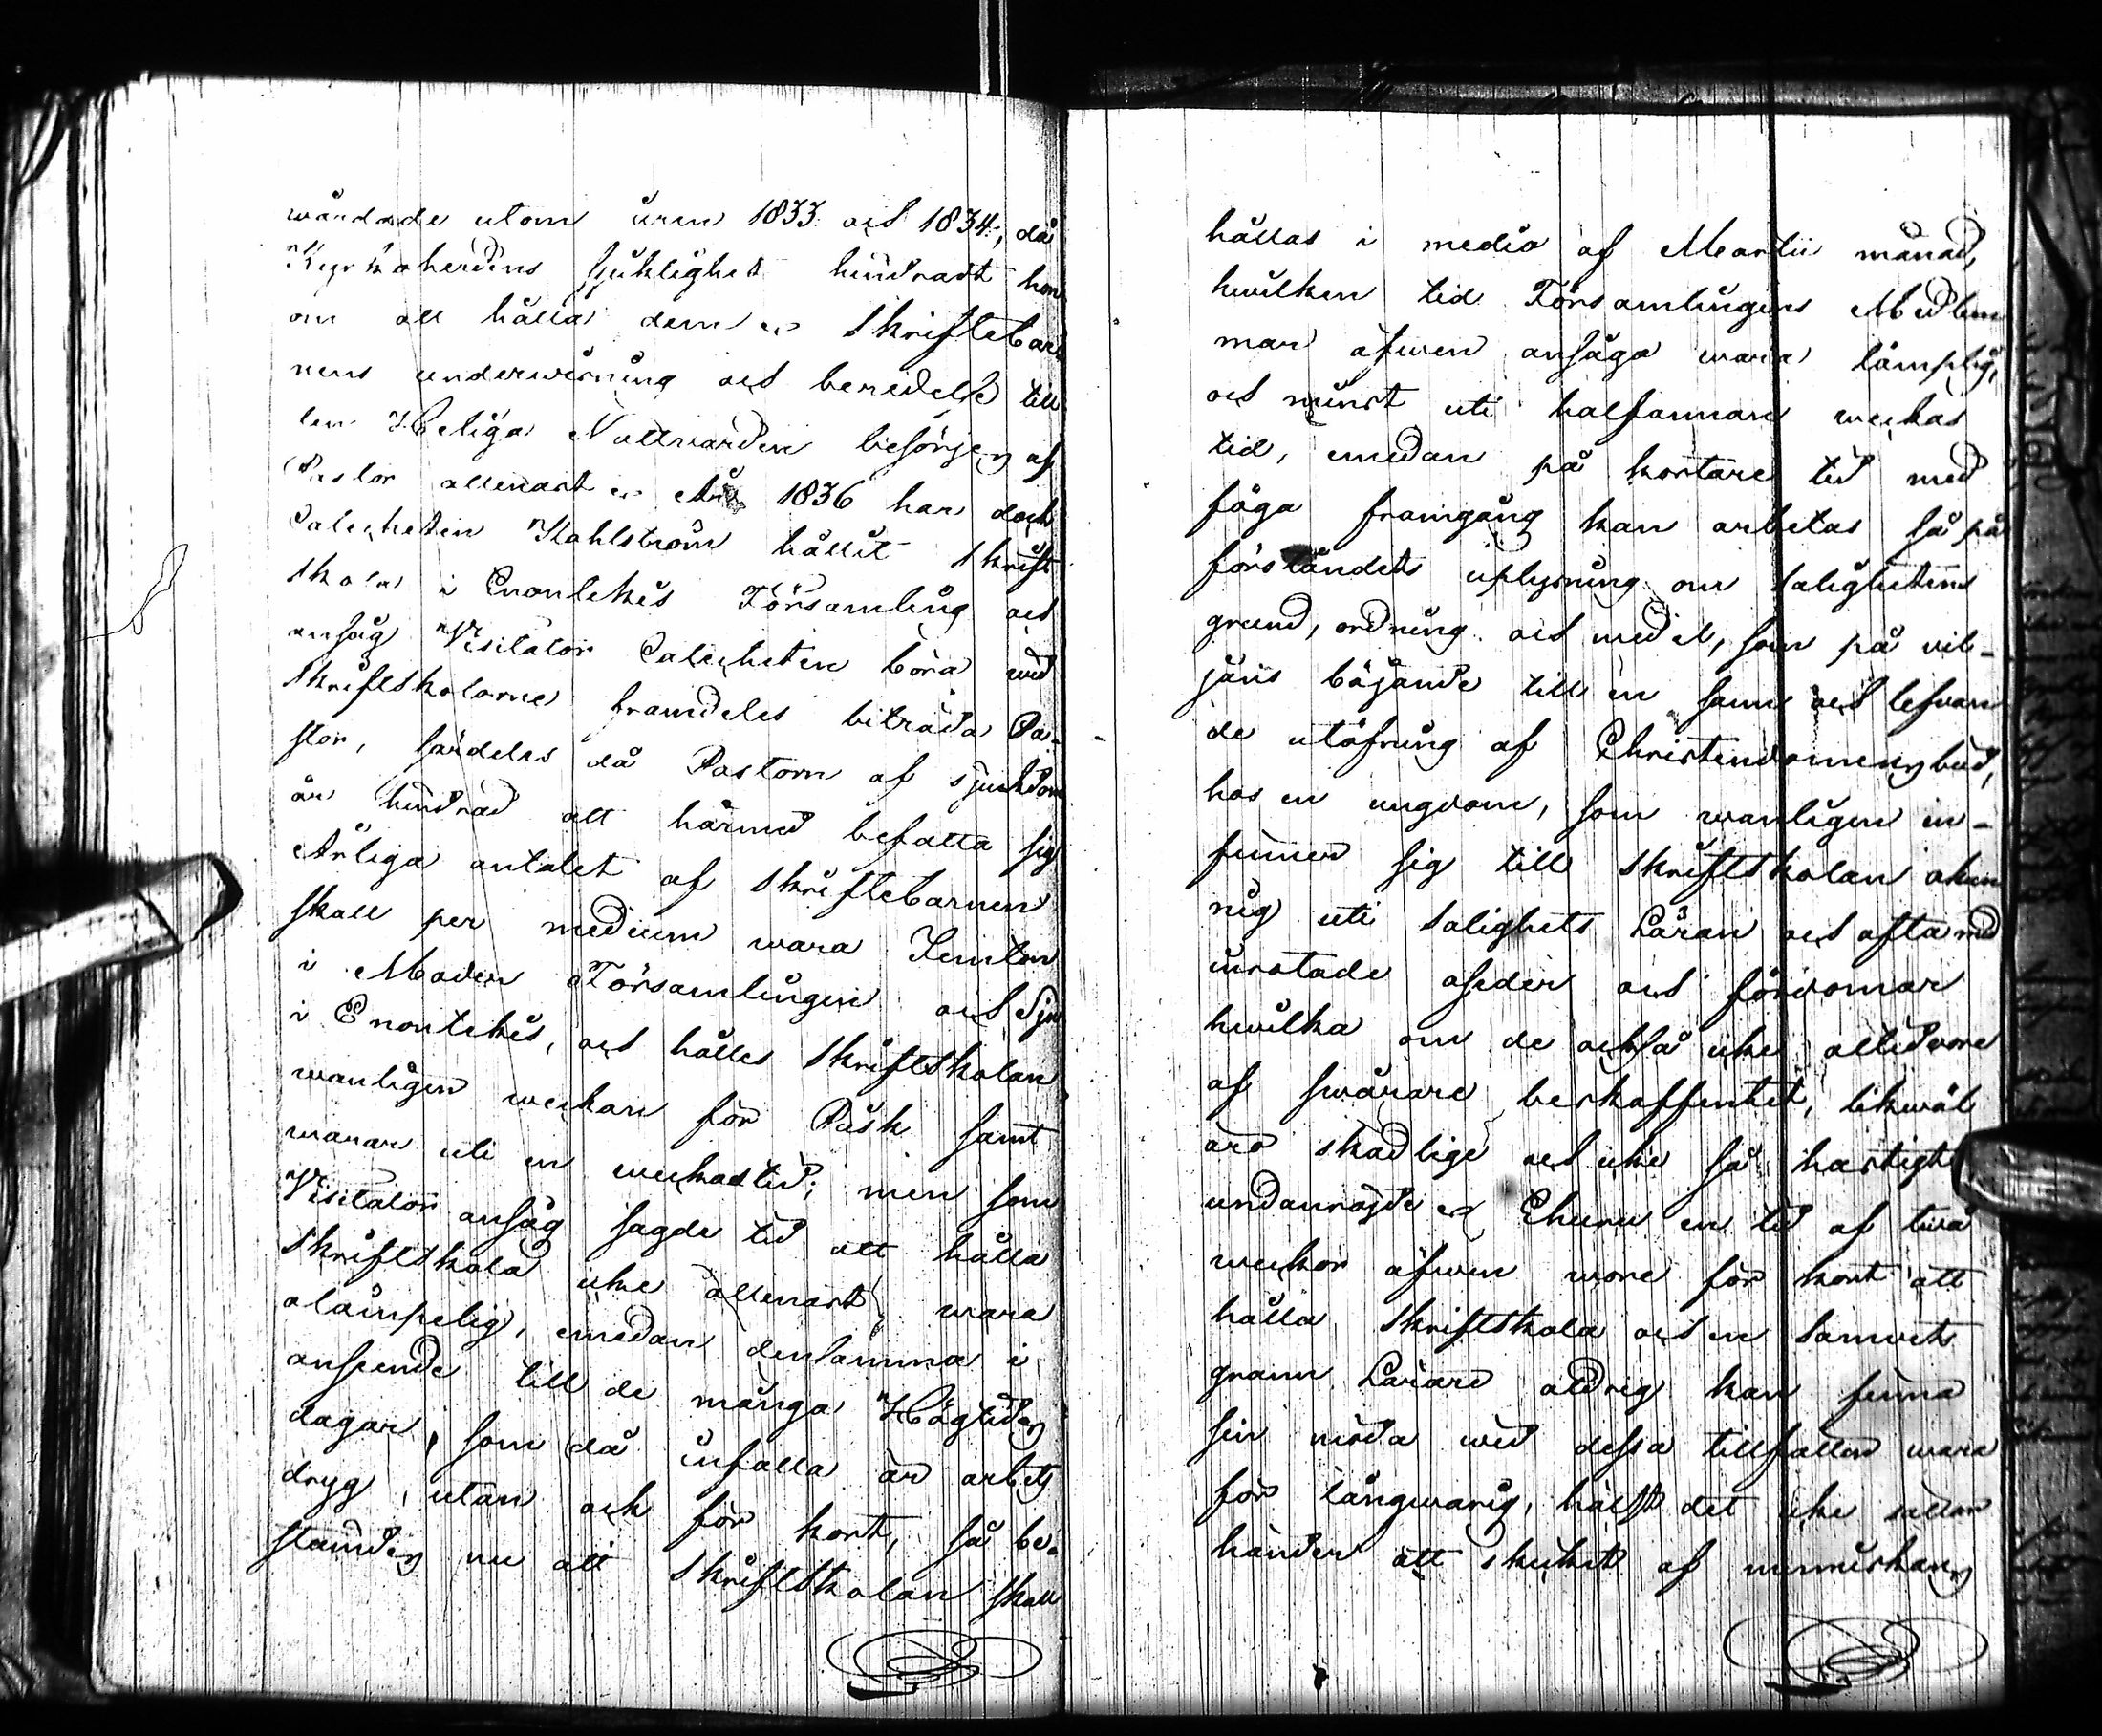 wårdade utom åren 1833 och 1834, då
Kyrkoherdens sjuklighet hindradt hon
om att hålla dem Skriftebar
nens underwisning och beredelse till
den Heliga Nattvarden besörjes af
Pastor allenast År 1836 har dock
Catecheten Stahlström hållit Skrift
skola i Enontekis Församling och
ansåg Visitator Catecheten böra wid
Skriftskolorne framdeles biträda Pa-
stor, särdeles då Pastorn af sjukdom
är hindrad att härmed befatta sig
Årliga antalet af skriftebarnen
skall per medium wara Femton
i Moder Församlingen och Sju
i Enontekis, och hålles Skriftskolan
wanligen weckan för Påsk samt
warar uti en weckastid; men som
Visitator ansåg sagde tid att hålla
Skriftskola icke allenast wara
olämpelig, emedan densamma i
anseende till de många Högtids
dagar, som då infalla är arbets
dryg, utan ock för kort, så be-
stämdes nu att Skriftskolan skall
hållas i medio af Martii månad,
hwilken tid Församlingens Medlem
mar äfwen ansågo wara lämplig,
och minst uti halfannan weckas
tid, emedan på kortare tid med
föga framgång kan arbetas så på
förståndets uplysning om salighetens
grund, ordning och medel, som på vil-
jans böjande till en sann och lefvan
de utöfning af Christendomens bud,
hos en ungdom, som wanligen in-
finner sig till Skriftskolan okun
nig uti Salighets Läran och ofta med
inrotade oseder och fördomar
hwilka om de också icke altid vore
af swårare beskaffenhet, likwäl
äro skadlige och icke så hastigt
undanröjde Ehuru en tid af twå
weckor äfwen wore för kort att
hålla Skriftskola och en samvets
grann Lärare aldrig kan finna
sin möda wid dessa tillfällen wara
för långwarig, hälst det icke sällan
händer att skicket af menniskans